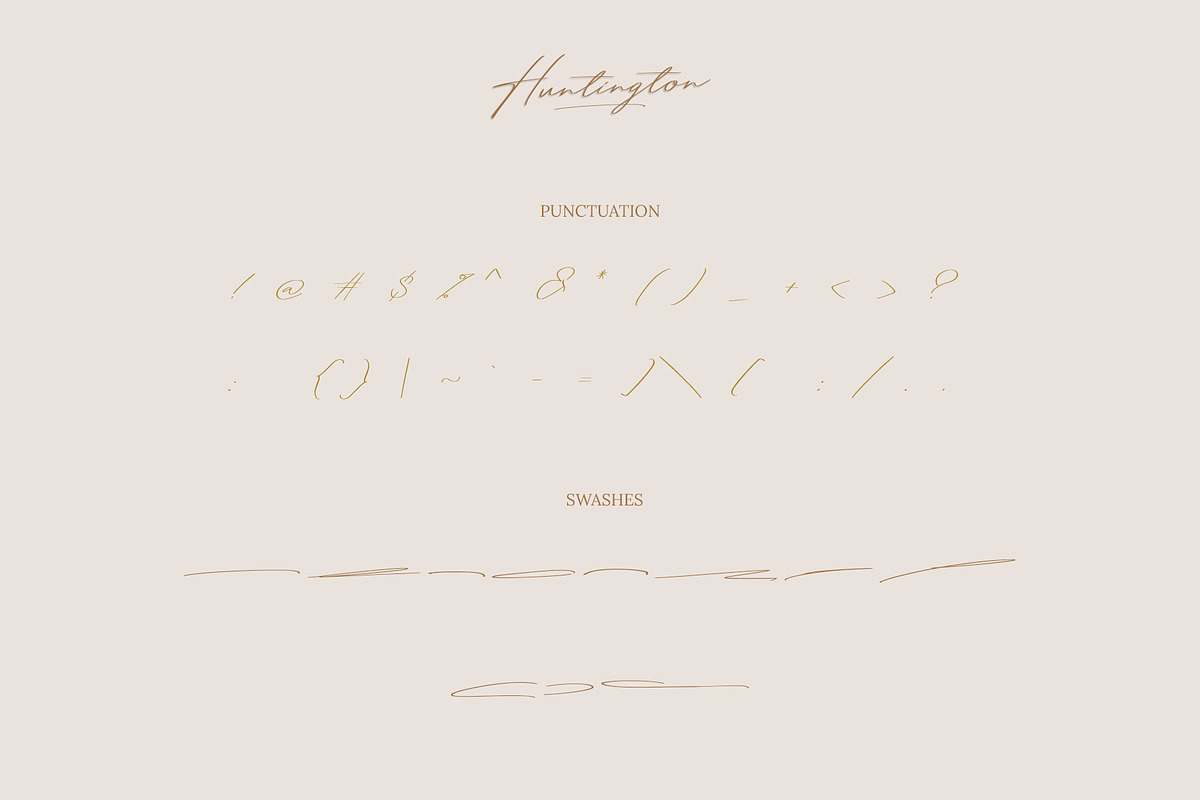 Huntington
PUNCTUATION
! @ # $ % ^ & * ( ) _ + < > ?
: { } | ~ ` - = ] \ [ ; / . .
SWASHES